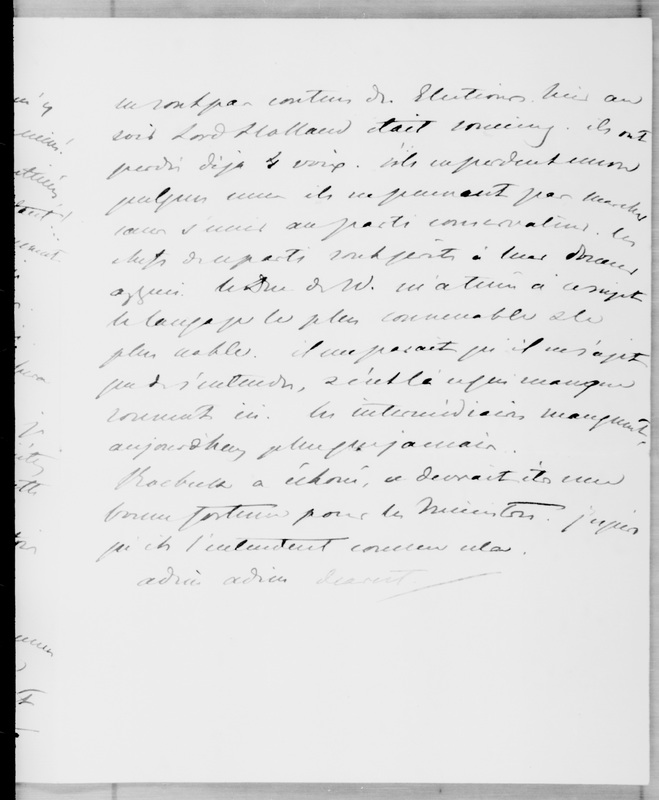 ne sont pas contens des Elections. hier au
soir Lord Holland était soucieux. ils ont
perdu déja 4 voix. s'ils en perdent encore
quelques unes ils ne peuvent pas marcher
sans s'unir au parti conservateur. les
chefs de ce parti sont prêts à leur donner
appui. le Duc de W. m'a tenu à ce sujet
le langage le plus convenable & le
plus noble. il me parait qu'il ne s'agit
que de s'entendre, & c'est là ce qui manque
souvent ici. les intermédiaires manquent,
aujourd'huy plus que jamais.
Roebuck a échoué, ce devrait être une
bonne fortune pour les Ministres. j'espère
qu'ils l'entendent comme cela.
adieu adieu dearest.